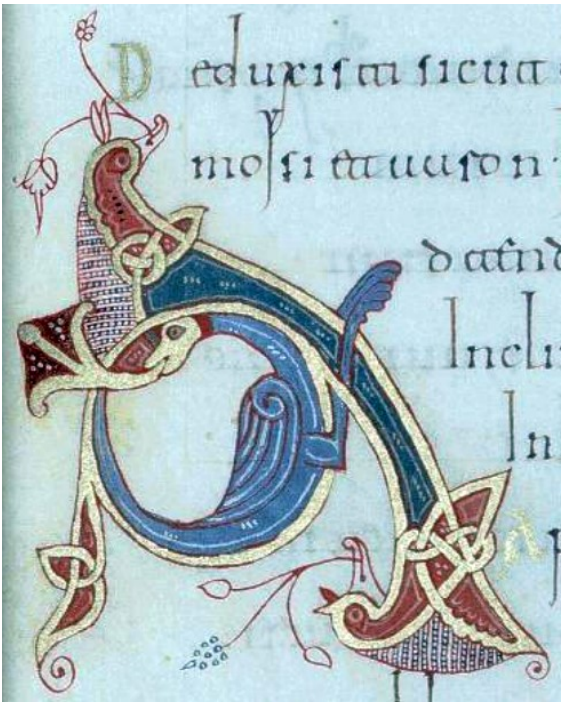 Deduxisti sicut
moysi et aaron·
Adtend
Incli
In
Ap